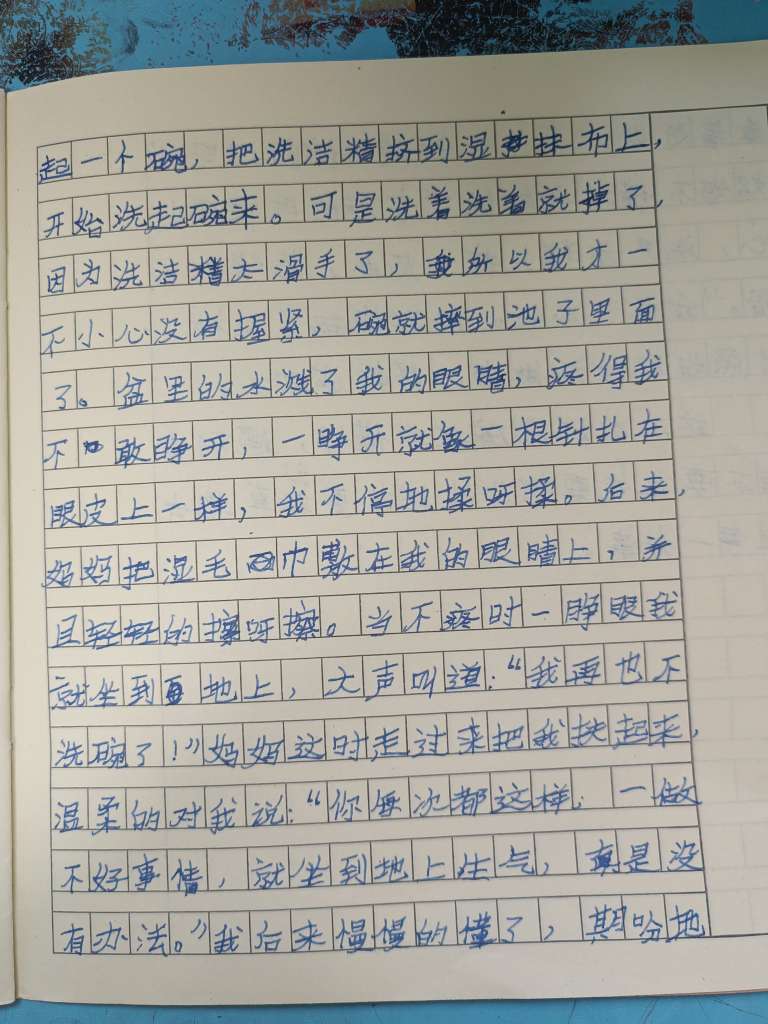 起一个碗，把洗洁精挤到湿抹布上，
开始洗起碗来。可是洗着洗着就掉了，
因为洗洁精太滑手了，所以我才一
不小心没有握紧，碗就摔到池子里面
了。盆里的水溅了我的眼睛，疼得我
不敢睁开，一睁开就像一根针扎在
眼皮上一样，我不停地揉呀揉。后来，
妈妈把湿毛巾敷在我的眼睛上，并
且轻轻的擦呀擦。当不疼时一睁眼我
就坐到地上，大声叫道：“我再也不
洗碗了！”妈妈这时走过来把我扶起来，
温柔的对我说：“你每次都这样，一做
不好事情，就坐到地上生气，真是没
有办法。”我后来慢慢的懂了，期吩地